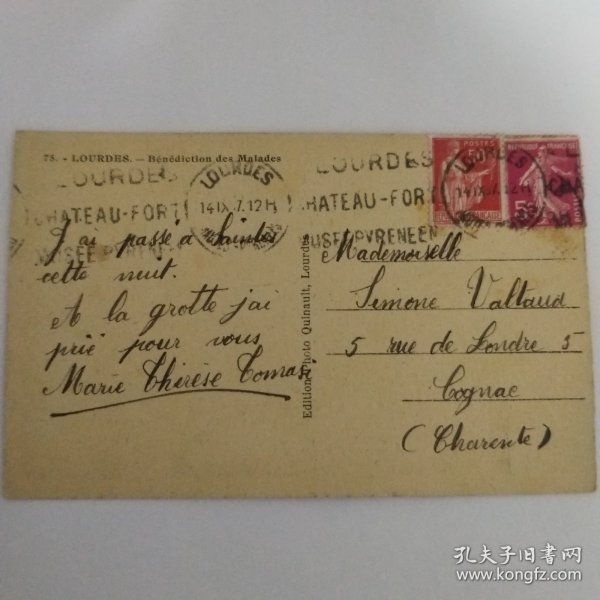 75. - LOURDES. — Bénédiction des Malades
LOURDES
CHATEAU-FORT
MUSÉE PYRENEEN
LOURDES
14 IX 7.12H
LOURDES
CHATEAU-FORT
MUSÉE PYRENEEN
LOURDES
14 IX 7.12H
POSTES
REPUBLIQUE FRANÇAISE
J'ai passé à Saintes
cette nuit.
A la grotte j'ai
prié pour vous
Marie Thérèse Tomasi
Edition Photo Quinault, Lourdes
Mademoiselle
Simone Valtaud
5 rue de Londre 5
Cognac
(Charente)
孔夫子旧书网
www.kongfz.com